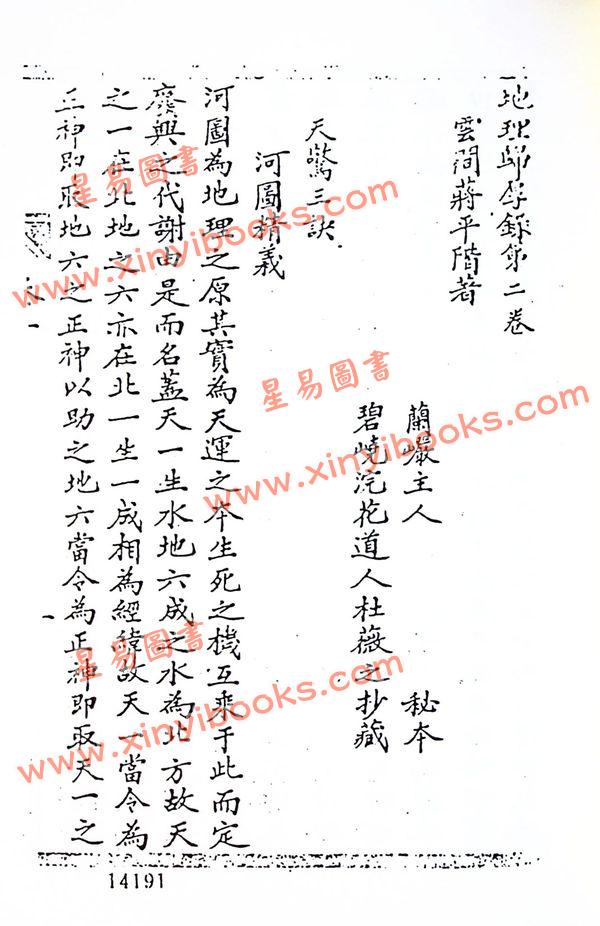 地理歸厚錄第二卷
雲間蔣平階著
蘭巖主人 秘本
碧嶢浣花道人杜薇之抄藏
天驚三訣
河圖精義
河圖為地理之原其實為天運之本生死之機互乘于此而定
廢興之代謝由是而名蓋天一生水地六成之水為北方故天
之一在北地之六亦在北一生一成相為經緯故天一當令為
正神即取地六之正神以助之地六當令為正神即取天一之
星易圖書
www.xinyibooks.com
星易圖書
www.xinyibooks.com
星易圖書
www.xinyibooks.com
14191